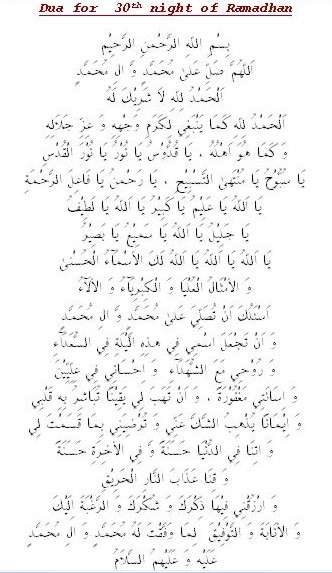 Dua for 30th night of Ramadhan
بِسْمِ اللهِ الرَّحْمٰنِ الرَّحِيْمِ
اَللّٰهُمَّ صَلِّ عَلىٰ مُحَمَّدٍ وَ الِ مُحَمَّدٍ
اَلْحَمْدُ لِلهِ لاَ شَرِيْكَ لَهُ
اَلْحَمْدُ لِلهِ كَمَا يَنْبَغِي لِكَرَمِ وَجْهِهِ وَ عِزِّ جَلاَلِهِ
وَ كَمَا هُوَ اَهْلُهُ ، يَا قُدُّوْسُ يَا نُوْرُ يَا نُوْرَ الْقُدْسِ
يَا سُبُّوْحُ يَا مُنْتَهىٰ التَّسْبِيْحِ ، يَا رَحْمٰنُ يَا فَاعِلَ الرَّحْمَةِ
يَا اَللهُ يَا عَلِيْمُ يَا كَبِيْرُ يَا اَللهُ يَا لَطِيْفُ
يَا جَلِيْلُ يَا اَللهُ يَا سَمِيْعُ يَا بَصِيْرُ
يَا اَللهُ يَا اَللهُ يَا اَللهُ لَكَ الْاَسْمَآءُ الْحُسْنىٰ
وَ الْاَمْثَالُ الْعُلْيَا وَ الْكِبْرِيَآءُ وَ الْآلَاءُ
اَسْئَلُكَ اَنْ تُصَلِّيَ عَلىٰ مُحَمَّدٍ وَ الِ مُحَمَّدٍ
وَ اَنْ تَجْعَلَ اسْمِي فِي هٰذِهِ الَّيْلَةِ فِي السُّعَدَآءِ
وَ رُوْحِي مَعَ الشُّهَدَآءِ وَ اِحْسَانِي فِي عِلِّيِّيْنَ
وَ اِسَائَتِي مَغْفُوْرَةً ، وَ اَنْ تَهَبَ لِي يَقِيْنًا تُبَاشِرُ بِهِ قَلْبِي
وَ اِيْمَانًا يُذْهِبُ الشَّكَّ عَنِّي وَ تُرْضِيَنِي بِمَا قَسَمْتَ لِي
وَ اتِنَا فِي الدُّنْيَا حَسَنَةً وَ فِي الْاخِرَةِ حَسَنَةً
وَ قِنَا عَذَابَ النَّارِ الْحَرِيْقِ
وَ ارْزُقْنِي فِيْهَا ذِكْرَكَ وَ شُكْرَكَ وَ الرَّغْبَةَ اِلَيْكَ
وَ الْاِنَابَةَ وَ التَّوْفِيْقَ لِمَا وَفَّقْتَ لَهُ مُحَمَّدٍ وَ الِ مُحَمَّدٍ
عَلَيْهِ وَ عَلَيْهِمُ السَّلاَمُ